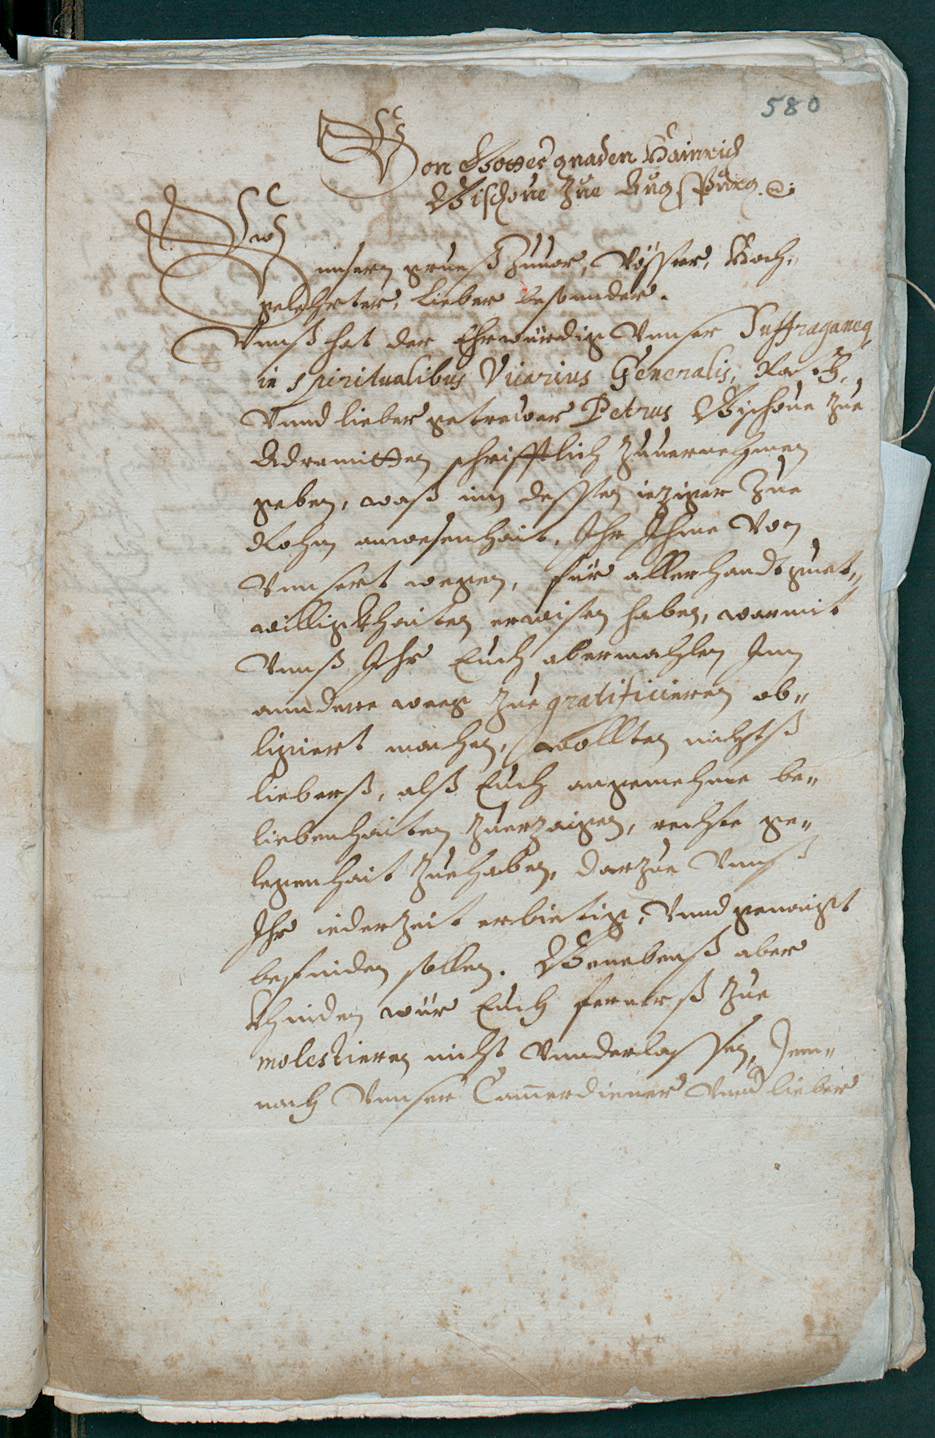 580
Von Gottes gnaden Hainrich
Bischoue Zue Augspurg.
Unsern grueß Zuuor, Vösster, Hoch,
gelehrter, lieber besonder.
Vnnß hat der Ehrwürdig Vnnser Suffraganeus,
in spiritualibus Vicarius Generalis,
Vnnd lieber getrewer Petrus Bischoue Zue
Adramitten schrifftlich Zuuernehmen
geben, waß inn dessen ieziger Zue
Rohm anwesenhait, Ihr Ihme Von
Vnnsert wegen, für allerhandt guet-
willigkhaiten erwisen haben, warmit
Vnnß Ihr Euch abermahlen Inn
anndere weeg Zue gratificieren ob-
ligiert machen, wollten nichtß
lieberß, alß Euch angenehme be-
liebenhaiten Zuerzaigen, rechte ge-
legenhait Zuehaben, darzue Vnnß
Ihr iederzeit erbietig, Vnnd genaigt
befinden sollen. Benebenß aber
khinden wür Euch fernerß Zue
molestieren nicht Vnnderlassen, Dem-
nach Vnnser Cammerdiener Vnnd lieber